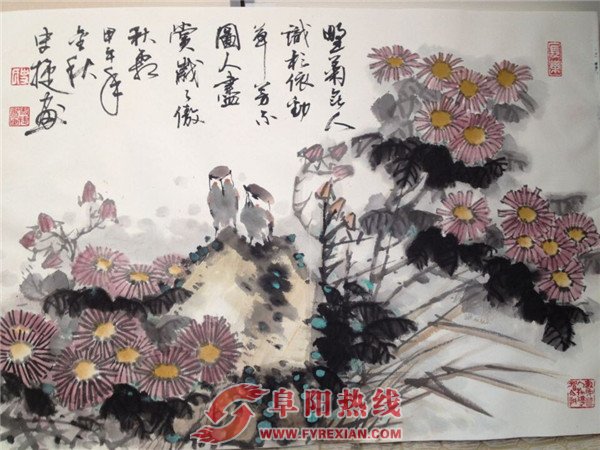 野菊無人
識於依勁
草芳不
圖人盡
賞歲々傲
秋霜
甲午年
金秋
史捷畫
阜阳热线
WWW.FYREXIAN.COM